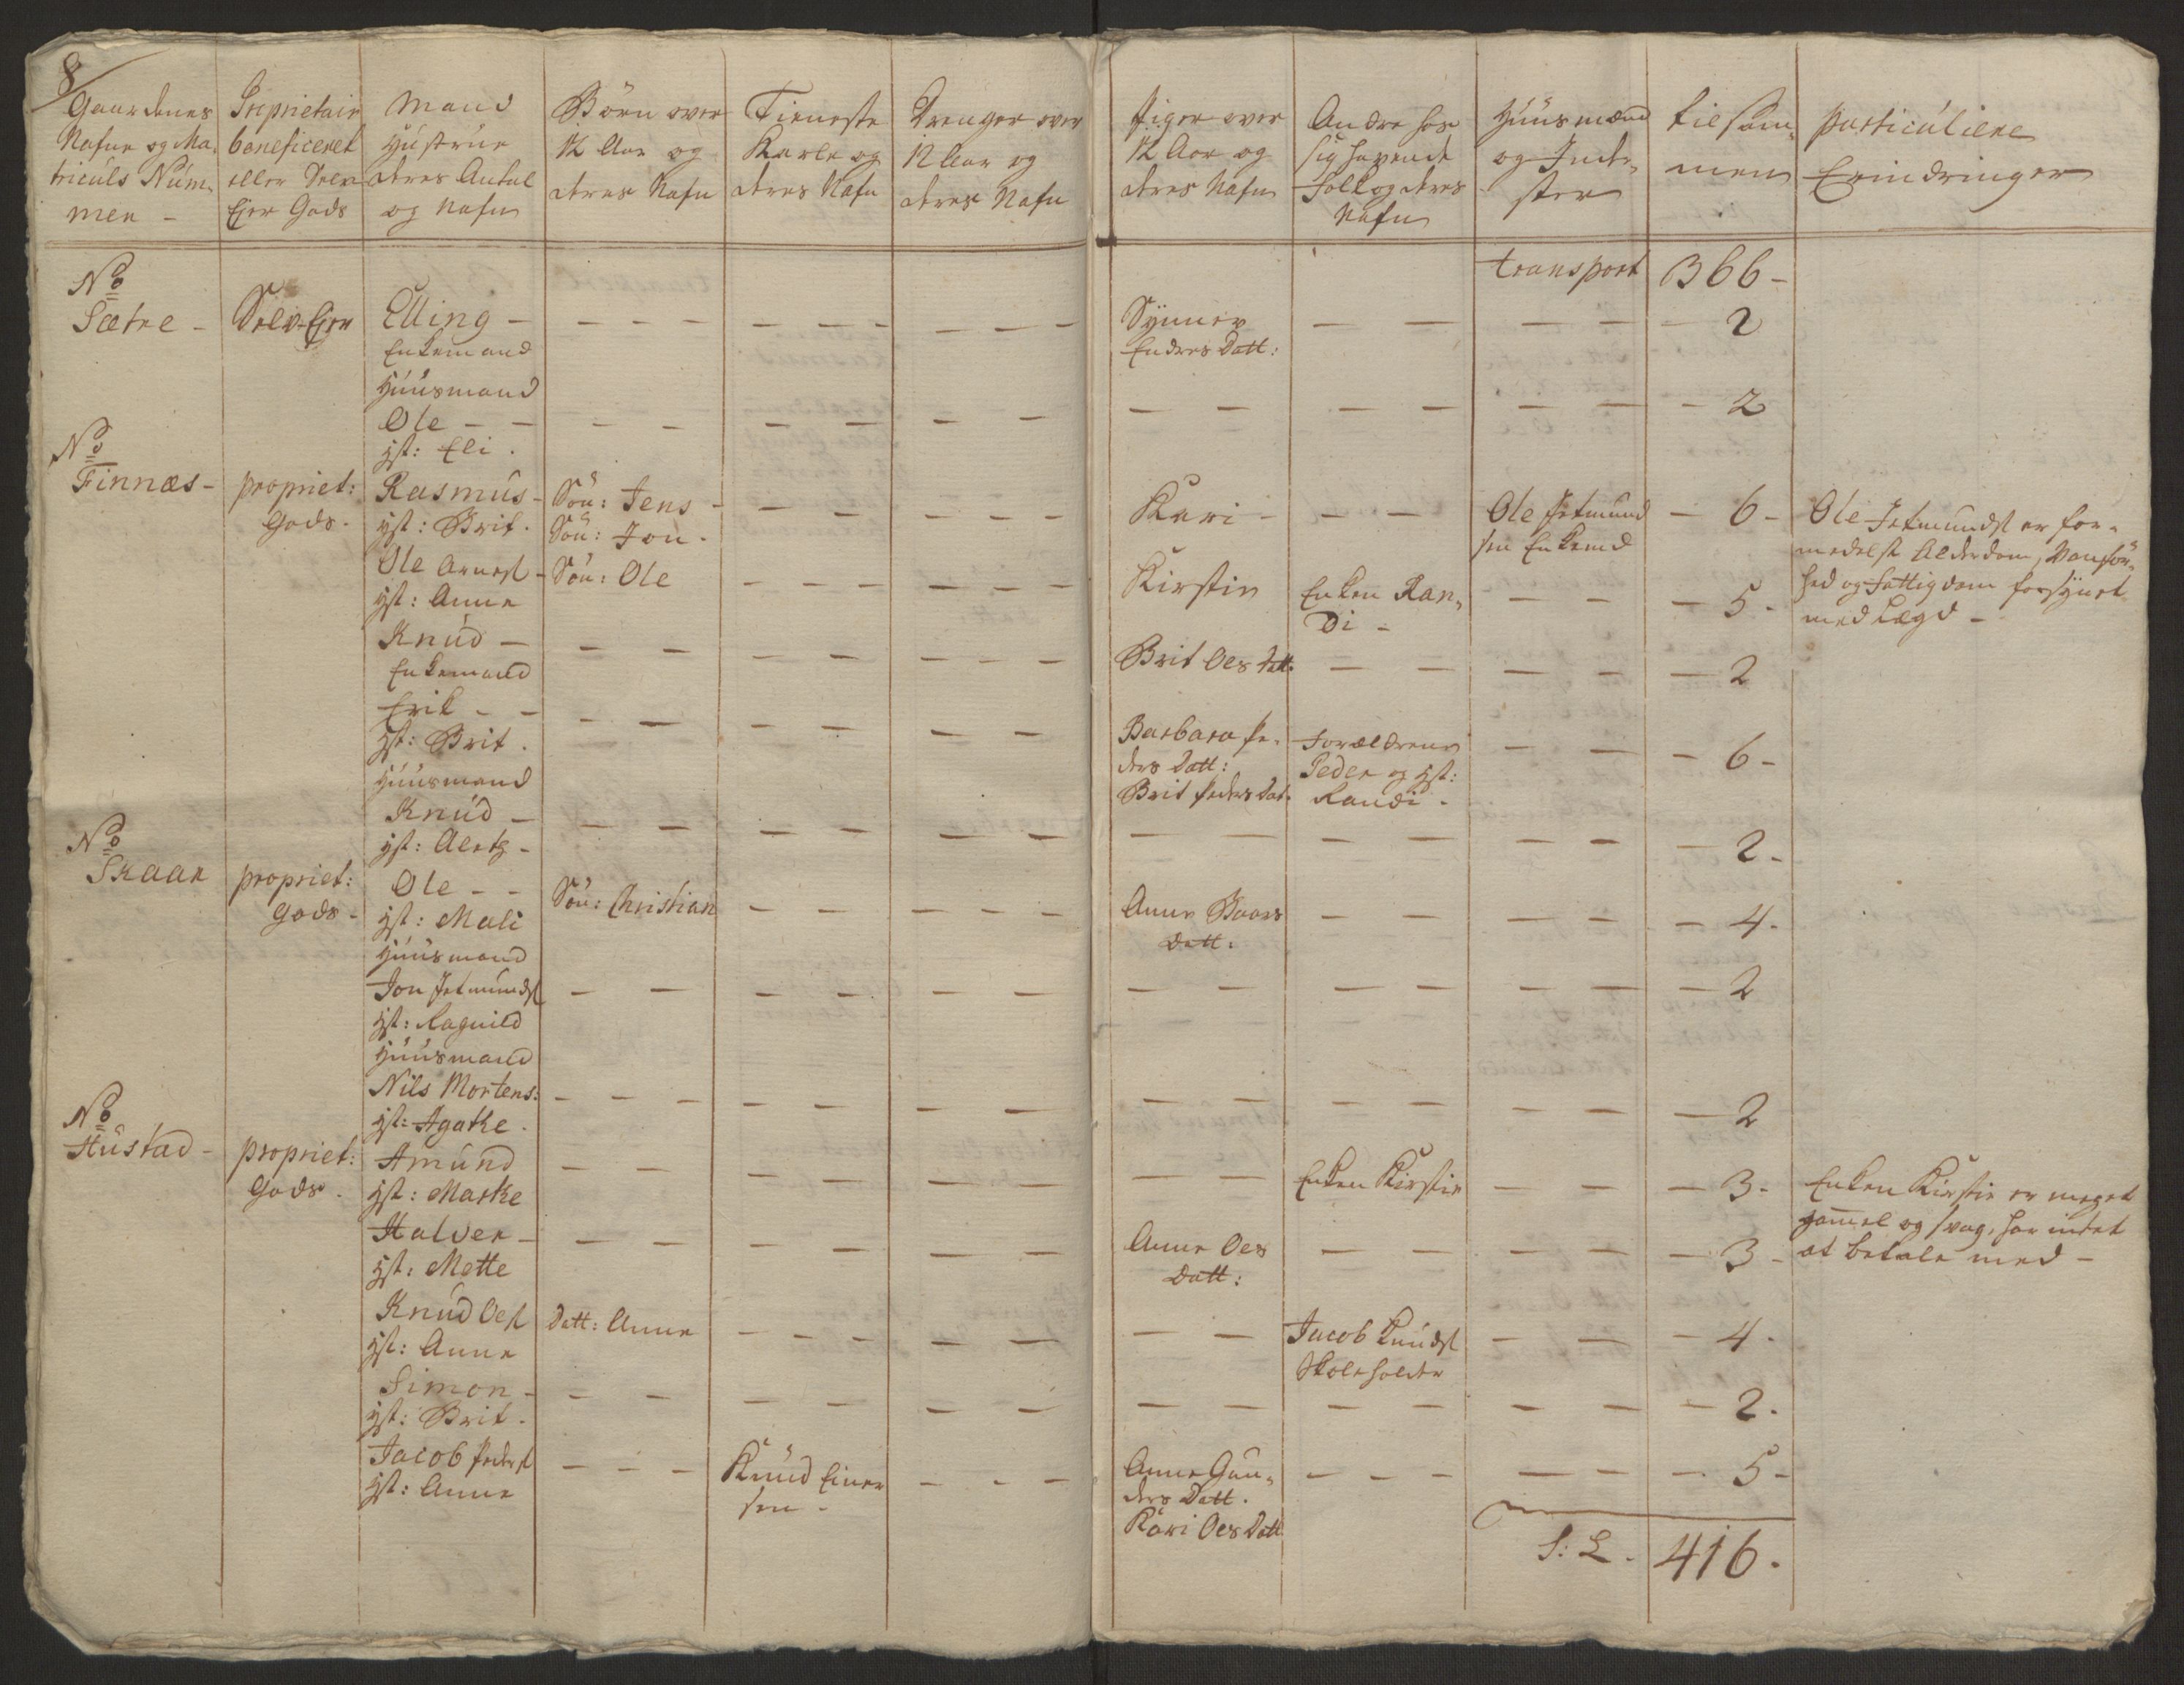 8
Gaardenes
Nafne og Ma-
triculs Num-
mer -
Proprietair
beneficeret
eller Selv-
Ejer Gods
Mand
Hustrue
deres Antal
og Nafn
Börn over
12 Aar og
deres Nafn
Tieneste
Karle og
deres Nafn
Drenger over
12 Aar og
deres Nafn
Piger over
12 Aar og
deres Nafn
Andre hos
sig havende
Folk og deres
Nafn
Huusmænd
og Inder-
ster
tilsam-
men
particuliere
Erindringer
transport 366-
No
Sætre - Selv-Ejer Elling - - - - - - - - - - -
Enkemand
Synnev
Endres Datt: - - - - - 2
Huusmand
Ole - - - - - - - - - - - - - - - 2
Hst: Eli.
No
Finnæs - propriet:
Gods -
Rasmus - Sön: Jens - - - - - -
Hst: Brit. Sön: Jon.
Kari - - - Ole Jetmund
sen Enkemd - 6 -
Ole Jetmundsl er for-
medelst Alderdom, Vanför-
hed og Fattigdom forsynet
med Lægd -
Ole Arnesl - Sön: Ole - - - - - -
Hst: Anne
Kirstin Enken Ran-
di - - - - 5 -
Knud - - - - - - - -
Enkemand
Brit Oes Datt. - - - - - 2
Erik - - - - - - - -
Hst: Brit.
Barbara Pe-
ders Datt:
Brit Peders Dat.
Forældrene
Peder og Hst:
Randi -
- - - 6 -
Huusmand
Knud - - - - - - -
Hst: - - - - - - - - 2 -
No
Skaar propriet:
Gods -
Ole - - Sön: Christian - - - - -
Hst: Mali
Anne Baars
Datt: - - - - - 4 -
Huusmand
Jon Jetmundsl - - - - - - - - - - - - - 2
Hst: Ragnild
Huusmand
Nils Mortens: - - - - - - - - - - - - - - 2
Hst: Agathe.
No
Hustad - propriet:
Gods.
Amund - - - - - - - - -
Hst: Marthe
Enken Kirstin - - - 3 -
Enken Kirstin er meget
gammel og svag, har intet
at betale med -
Halver - - - - - - - -
Hst: Mette
Anne Oes
Datt: - - - - - 3 -
Knud Oesl Datt: Anne - - - - -
Hst: Anne
- - Jacob Knudsl
Skoleholder - - - 4 -
Simon - - - - - - - - - - - - - - 2 -
Hst: Brit.
Jacob Pedersl - - - Knud Einer
sen - - - -
Hst: Anne
Anne Gun-
ders Datt.
Kari Oes Datt
- - - - - - 5 -
S: L. 416.